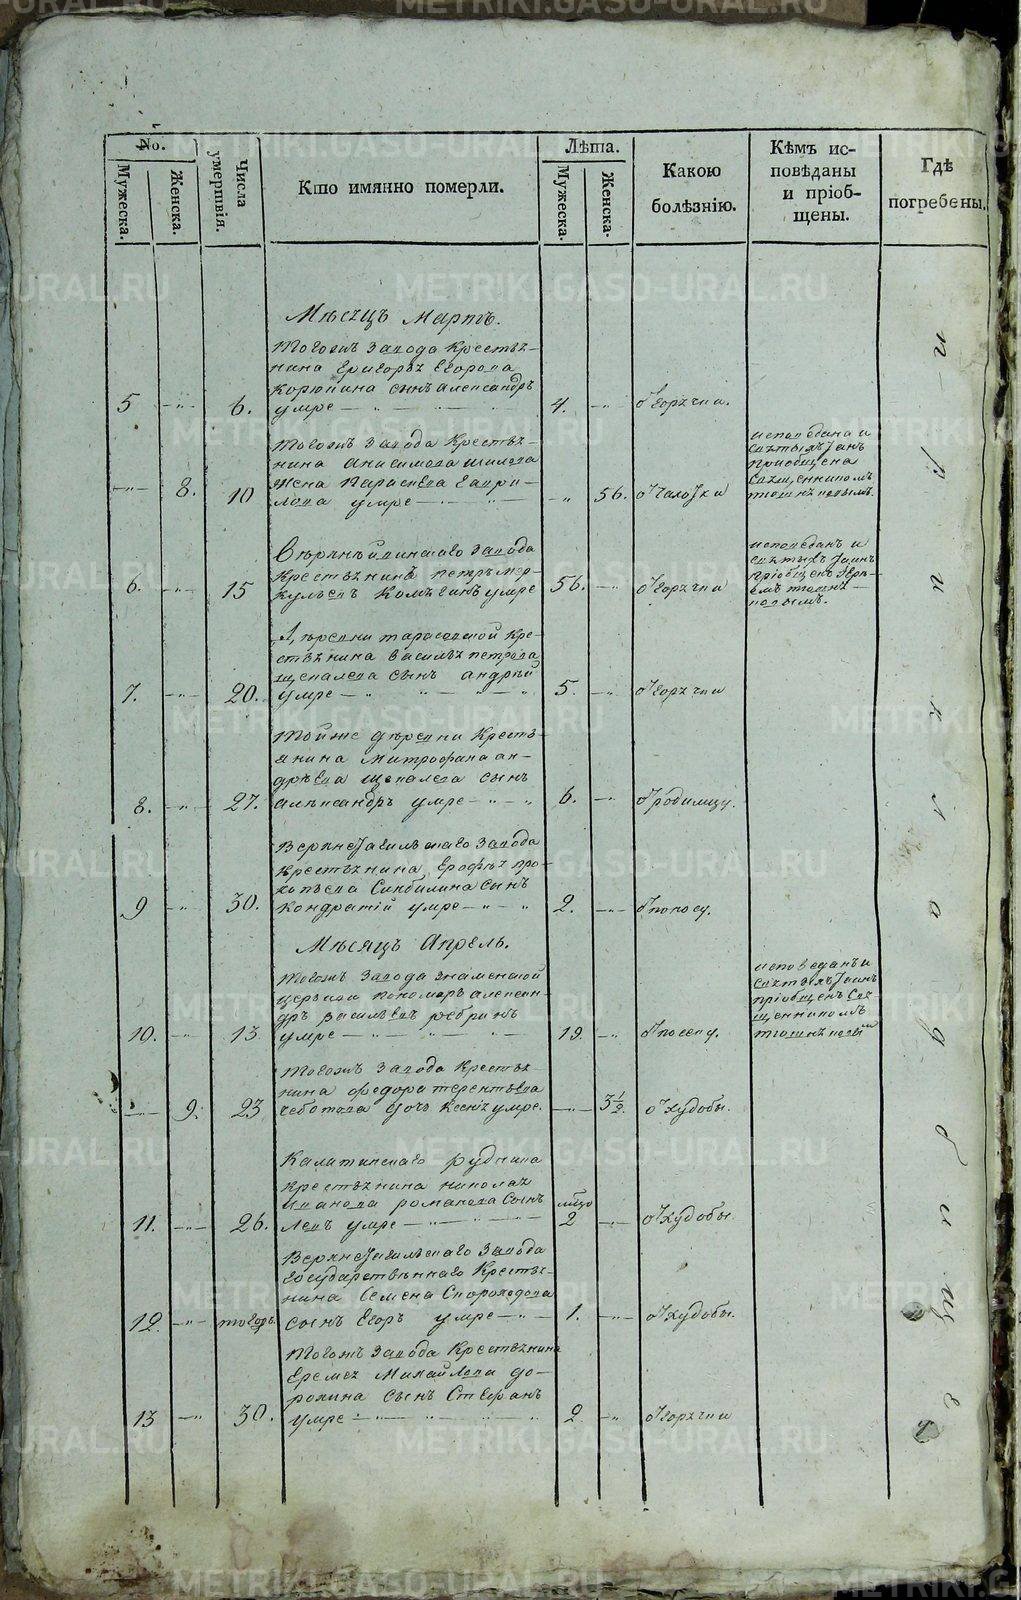 No.
Мужеска.
Женска.
Числа умертвія.
Кто имянно померли.
Лѣта.
Мужеска.
Женска.
Какою болѣзнію.
Кѣмъ исповѣданы и пріобщены.
Гдѣ погребены.
Мѣсяцъ Мартъ.
Тогожъ завода крестья-
нина Григорья Егорова
Корюкина сынъ Александръ
5 — 6. умре — 4. — Отъ горячки.
Тогожъ завода крестья-
нина Анисимова
жена Параскева Гаври-
— 8. 10 лова умре — 56. Отъ чахотки
исповѣдана и
святыхъ таинъ
пріобщена
священникомъ
завода
крестьянинъ Петръ Мер-
6. — 15 кульевъ умре 56. — Отъ горячки
исповѣданъ и
святыхъ таинъ
пріобщенъ
Деревни Тарасовой кре-
стьянина Василья Петрова
Щепалева сынъ Андрей
7. — 20. умре — 5. — Отъ горячки
Тойже деревни кресть-
янина Митрофана Ан-
дреева Щепалева сынъ
8. — 27. Александръ умре — 6. — Отъ родимцу.
Верхнетагильскаго завода
крестьянина Ерофея Про-
копьева сынъ
9 — 30. Кондратій умре — 2. — Отъ поносу.
Мѣсяцъ Апрель.
Тогожъ завода Знаменской
церкви пономарь Алексан-
дръ Васильевъ Ребринъ
10. — 13. умре — 19. —
исповѣданъ и
святыхъ таинъ
пріобщенъ свя-
щенникомъ
Тогожъ завода крестья-
нина Федора Терентьева
— 9. 23 дочь Ксенія умре. — 3½. Отъ худобы.
Калатинскаго рудника
крестьянина Николая
Иванова Романова сынъ
11. — 26. Левъ умре — 2 — Отъ худобы
Верхнетагильскаго завода
государственнаго крестья-
нина Семена Скороходова
12. — тогожъ. сынъ Егоръ умре — 1. — Отъ худобы.
Тогожъ завода крестьянина
Еремея Михайлова До-
рохина сынъ Стефанъ
13 — 30. умре — 2. — Отъ горячки
н а к л а д б и щ е
METRIKI.GASO-URAL.RU